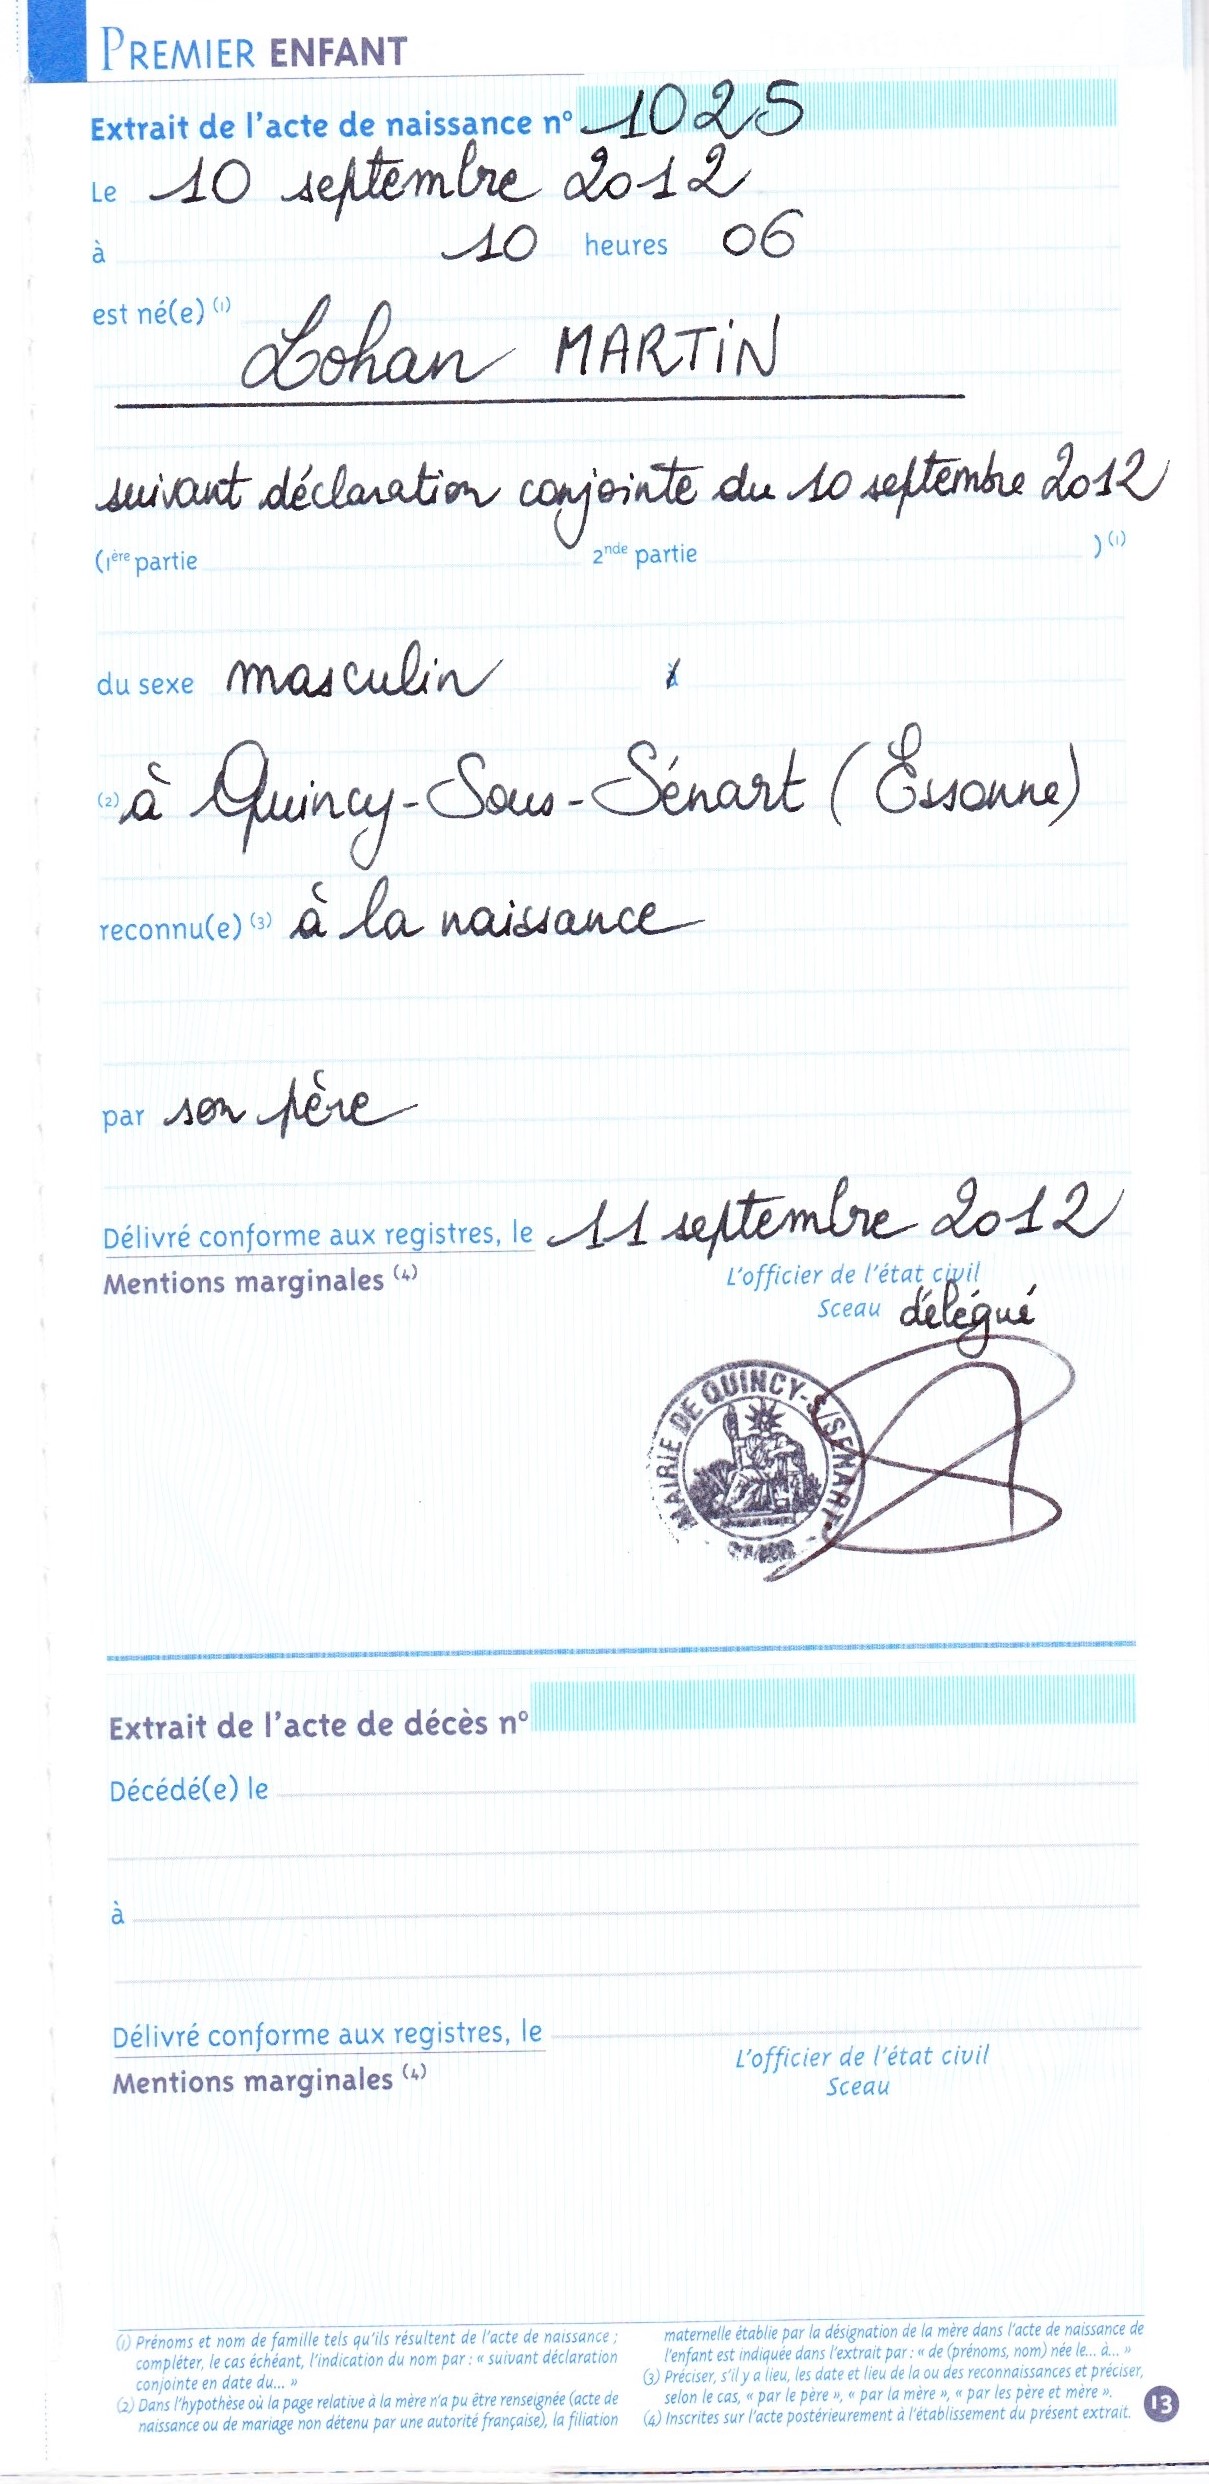 PREMIER ENFANT
Extrait de l'acte de naissance n° 1025
Le 10 septembre 2012
à 10 heures 06
est né(e) (1)
Lohan MARTIN
suivant déclaration conjointe du 10 septembre 2012
(1ère partie 2nde partie ) (1)
du sexe masculin à
(2) à Quincy-Sous-Sénart (Essonne)
reconnu(e) (3) à la naissance
par son père
Délivré conforme aux registres, le 11 septembre 2012
Mentions marginales (4)
L'officier de l'état civil
Sceau délégué
MAIRIE DE QUINCY-S/SENART
Extrait de l'acte de décès n°
Décédé(e) le
à
Délivré conforme aux registres, le
Mentions marginales (4)
L'officier de l'état civil
Sceau
(1) Prénoms et nom de famille tels qu'ils résultent de l'acte de naissance ;
compléter, le cas échéant, l'indication du nom par : « suivant déclaration
conjointe en date du... »
(2) Dans l'hypothèse où la page relative à la mère n'a pu être renseignée (acte de
naissance ou de mariage non détenu par une autorité française), la filiation
maternelle établie par la désignation de la mère dans l'acte de naissance de
l'enfant est indiquée dans l'extrait par : « de (prénoms, nom) née le... à... »
(3) Préciser, s'il y a lieu, les date et lieu de la ou des reconnaissances et préciser,
selon le cas, « par le père », « par la mère », « par les père et mère ».
(4) Inscrites sur l'acte postérieurement à l'établissement du présent extrait.
13